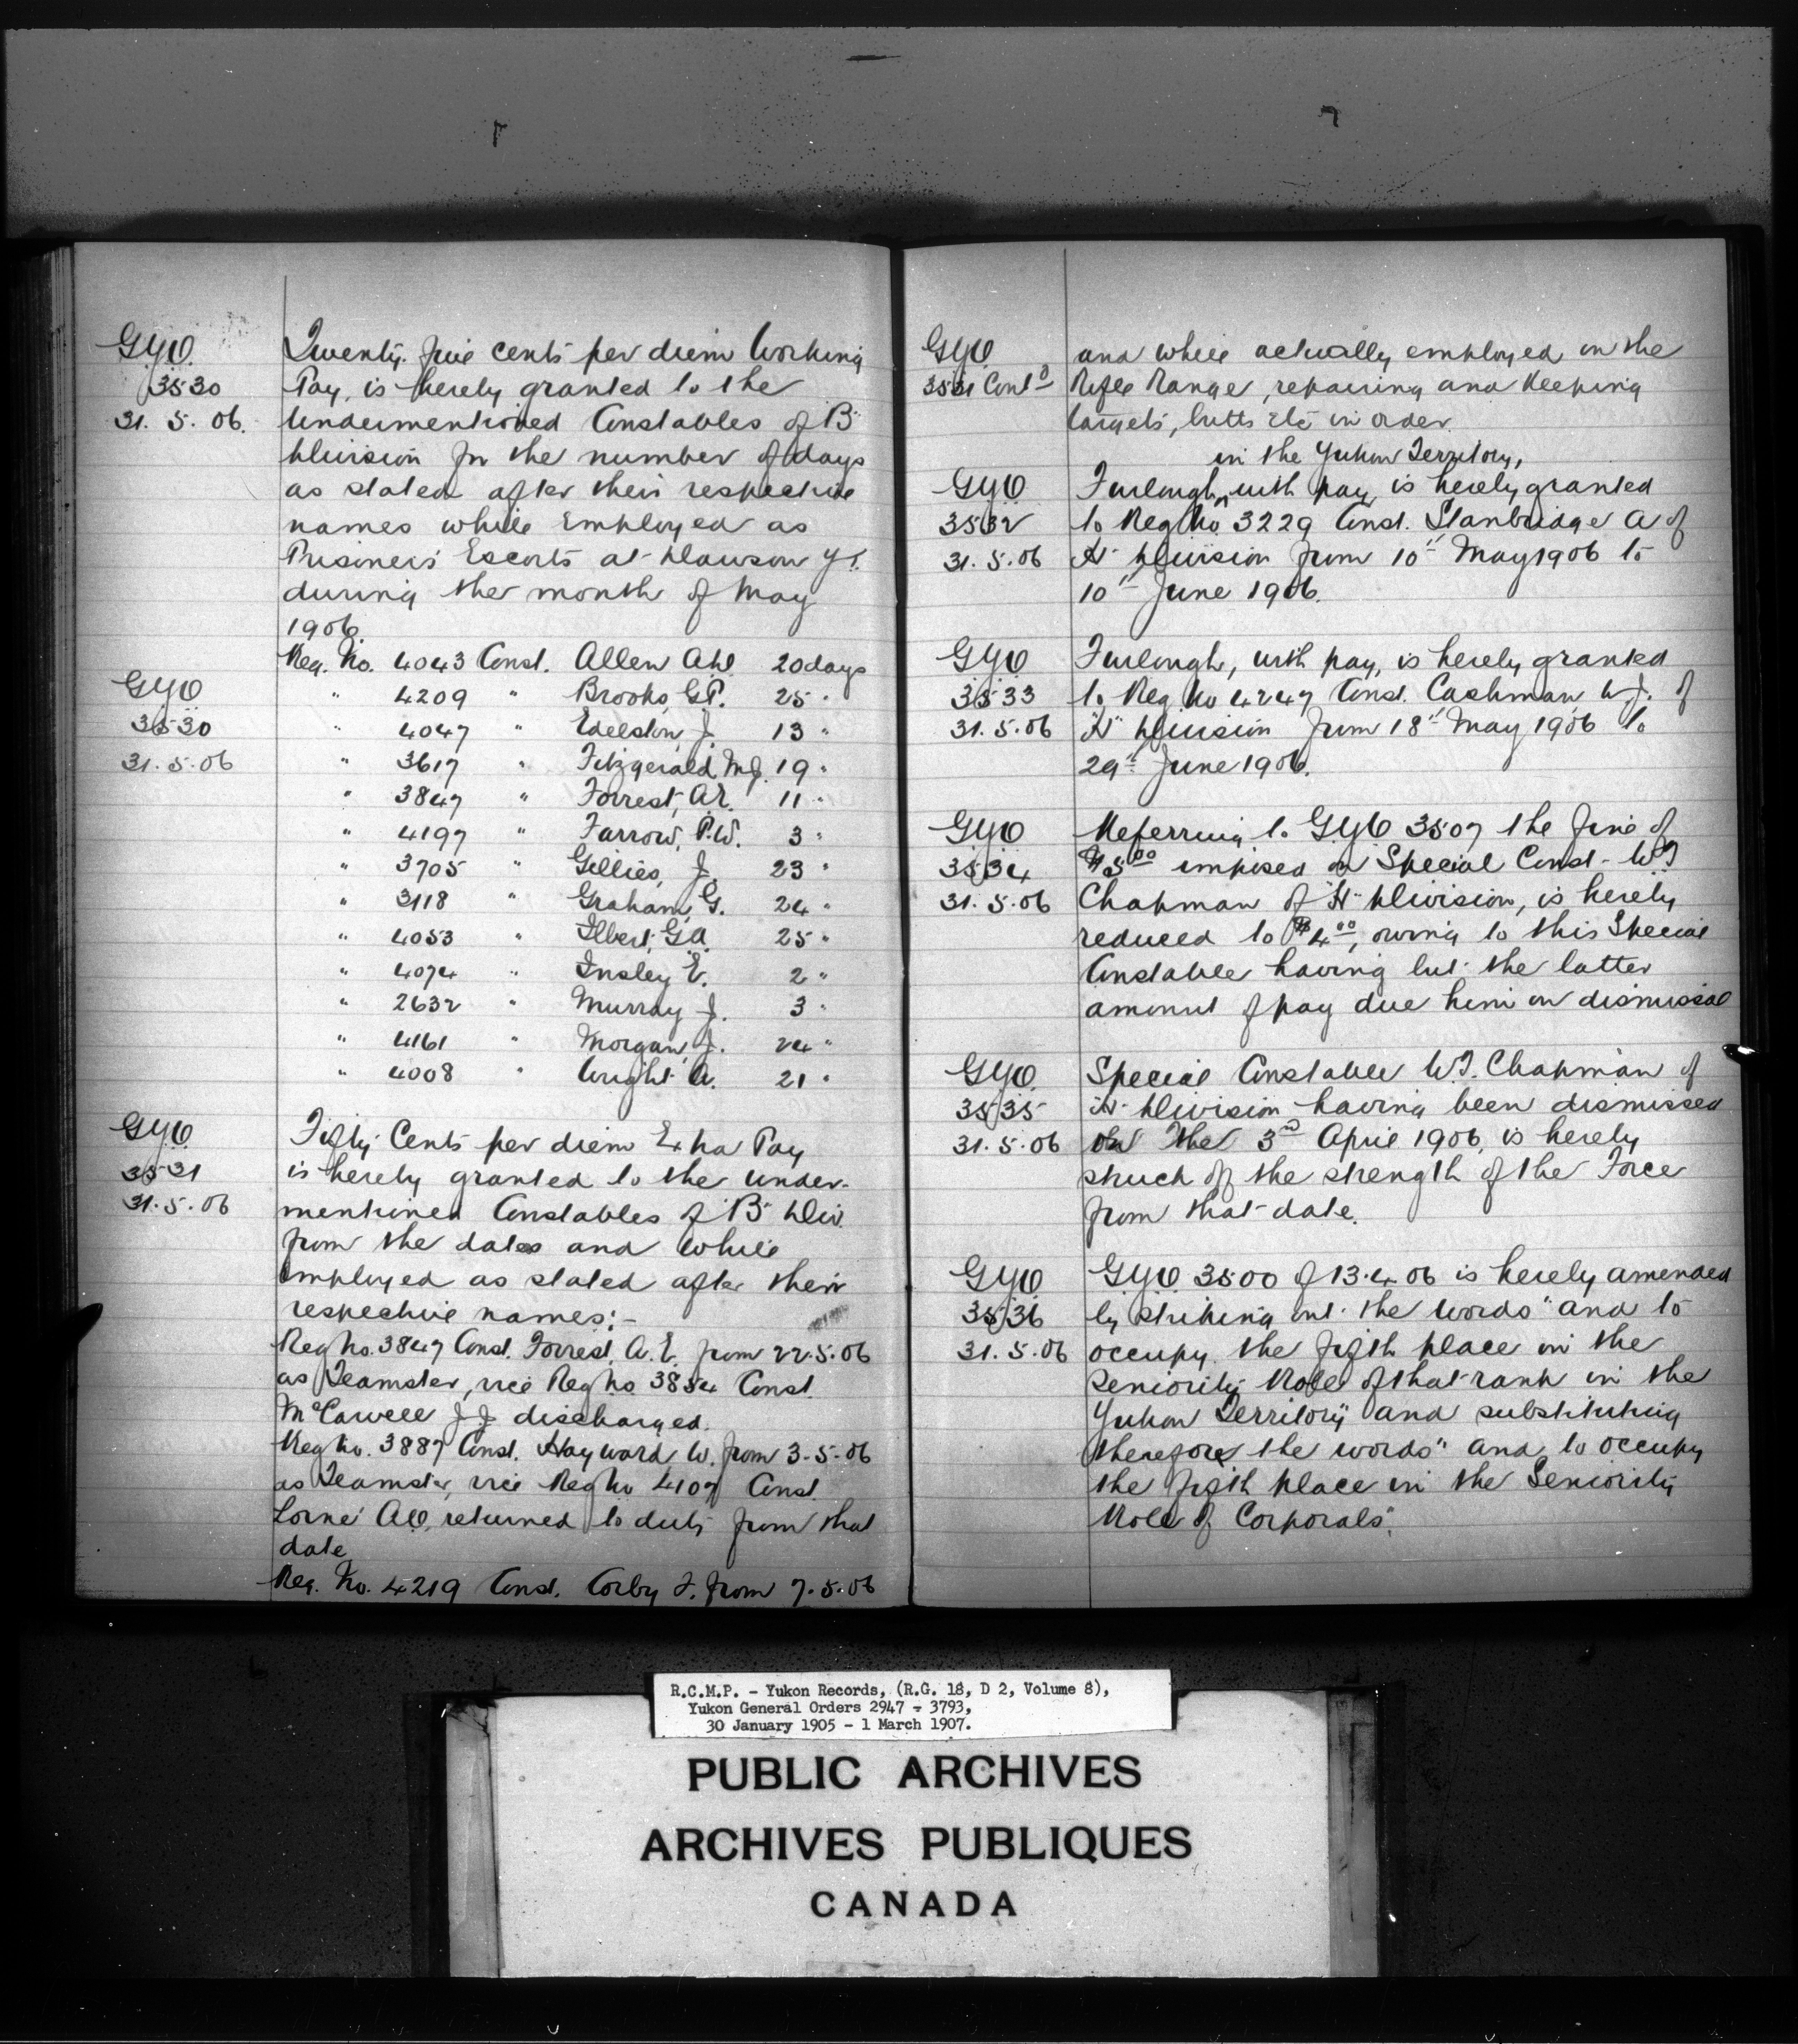 GYO
3530
31. 5. 06.
Twenty five cents per diem Working
Pay, is hereby granted to the
undermentioned Constables of "B"
Division for the number of days
as stated after their respective
names while Employed as
Prisoners' Escorts at Dawson Y.T.
during the month of May
1906.
Reg. No. 4043 Const. Allen A W 20 days
GYO
3530
31. 5. 06
" 4209 " Brooks, G.P. 25 "
" 4047 " Edelston, J. 13 "
" 3617 " Fitzgerald, M.J. 19 "
" 3847 " Forrest, A.E. 11 "
" 4197 " Farrow, P.W. 3 "
" 3705 " Gillies, J. 23 "
" 3118 " Graham, G. 24 "
" 4053 " Ilbert, G.A. 25 "
" 4074 " Insley E. 2 "
" 2632 " Murray J. 3 "
" 4161 " Morgan, J. 24 "
" 4008 " Wright A. 21 "
GYO
3531
31. 5. 06
Fifty Cents per diem Extra Pay
is hereby granted to the under-
mentioned Constables of "B" Div.
from the dates and while
employed as stated after their
respective names:-
Reg No. 3847 Const. Forrest, A. E. from 22.5.06
as Teamster, vice Reg No. 3854 Const.
J J discharged.
Reg No. 3887 Const. Hayward W. from 3-5-06
as Teamster, vice Reg No 4107 Const.
Lorne returned to duty from that
date
Reg. No. 4219 Const. Corby F. from 7.5.06
GYO
3531 Cont'd
and while actually employed on the
Rifle Range, repairing and keeping
targets, butts etc in order.
in the Yukon Territory,
GYO
3532
31. 5. 06
Furlough, with pay, is hereby granted
to Reg No 3229 Const. Stanbridge A of
"H" Division from 10th May 1906 to
10th June 1906.
GYO
3533
31. 5. 06
Furlough, with pay, is hereby granted
to Reg No 4247 Const. Cashman W J. of
"H" Division from 18th May 1906 to
29th June 1906.
GYO
3534
31. 5. 06
Referring to GYO 3507 the fine of
$5.00 imposed on Special Const. W J
Chapman of "H" Division, is hereby
reduced to $4.00, owing to this Special
Constable having but the latter
amount of pay due him on dismissal
GYO
3535
31. 5. 06
Special Constable W J. Chapman of
"H" Division having been dismissed
on the 3rd April 1906, is hereby
struck off the strength of the Force
from that date.
GYO
3536
31. 5. 06
GYO 3500 of 13.4.06 is hereby amended
by striking out the words "and to
occupy the fifth place in the
Seniority Role of that rank in the
Yukon Territory" and substituting
therefore the words "and to occupy
the fifth place in the Seniority
Role of Corporals".
R.C.M.P. - Yukon Records, (R.G. 18, D 2, Volume 8),
Yukon General Orders 2947 - 3793,
30 January 1905 - 1 March 1907.
PUBLIC ARCHIVES
ARCHIVES PUBLIQUES
CANADA